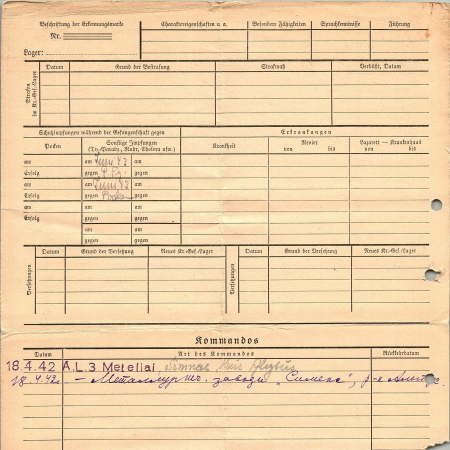 Beschriftung der Erkennungsmarke
Nr.
Lager:
Charaktereigenschaften u. a.
Besondere Fähigkeiten
Sprachkenntnisse
Führung
Strafen im Kr.-Gef.-Lager
Datum
Grund der Bestrafung
Strafmaß
Verbüßt, Datum
Schutzimpfungen während der Gefangenschaft gegen
Erkrankungen
Pocken
Sonstige Impfungen
(Ty, Paraty, Ruhr, Cholera usw.)
Krankheit
Revier
von bis
Lazarett — Krankenhaus
von bis
am am Juni 42 am
Erfolg gegen gegen
am am Juni 42 am
Erfolg gegen Pocken gegen
am am am
Erfolg gegen gegen
am am
gegen gegen
Versetzungen
Datum
Grund der Versetzung
Neues Kr.-Gef.-Lager
Versetzungen
Datum
Grund der Versetzung
Neues Kr.-Gef.-Lager
Kommandos
Datum
Art des Kommandos
Rückkehrdatum
18.4.42 A.L.3 Meteliai Simnas
18.4.42.